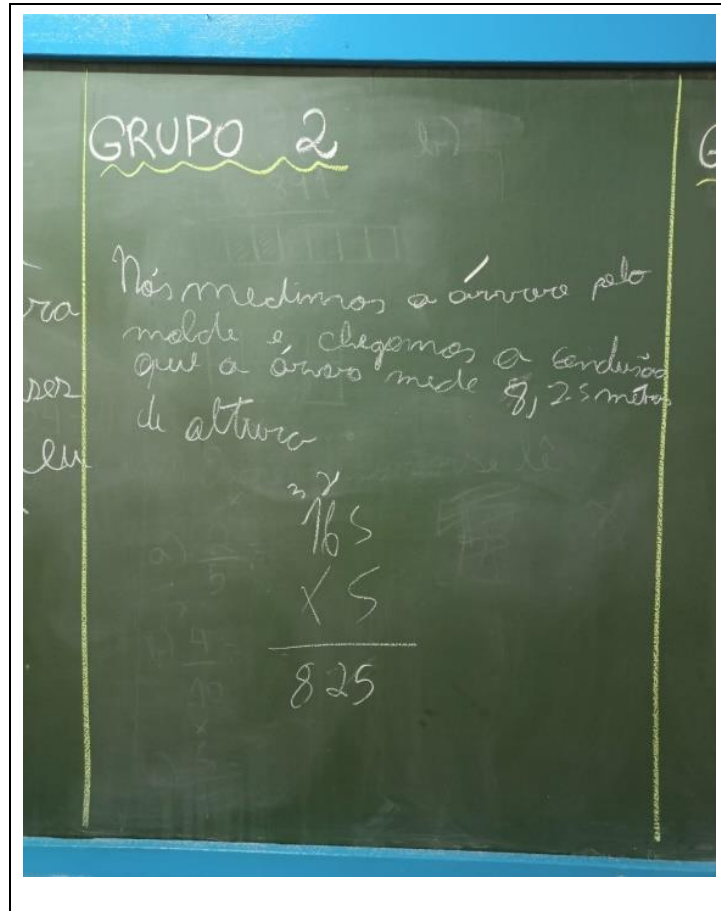 GRUPO 2
Nós medimos a árvore pelo
molde e chegamos a conclusão
que a árvore mede 8,25 metros
de altura
165
x 5
825
ra
ser
eu